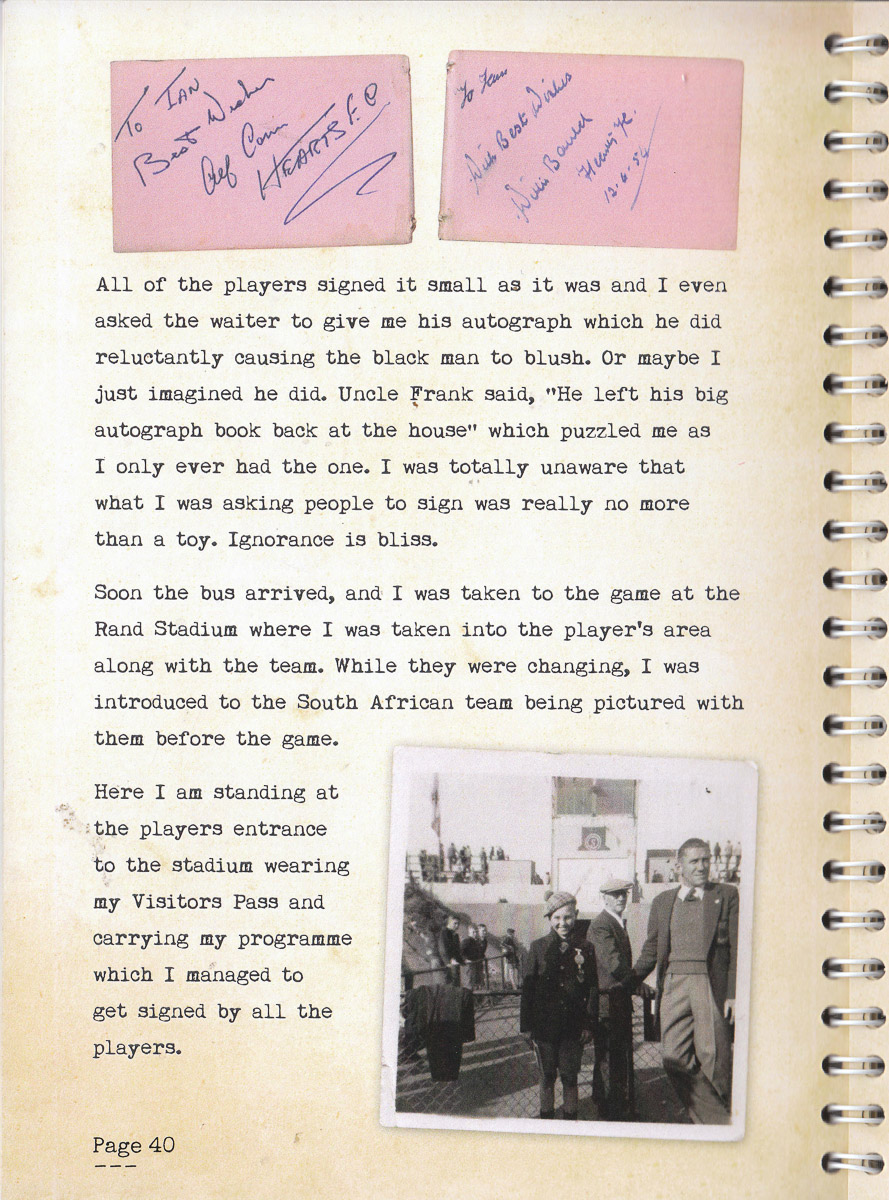 To IAN
Best Wishes
Alf Conn
HEARTS F.C
To Ian
With Best Wishes
Willie Bauld
Hearts F.C.
12.6.54
All of the players signed it small as it was and I even
asked the waiter to give me his autograph which he did
reluctantly causing the black man to blush. Or maybe I
just imagined he did. Uncle Frank said, "He left his big
autograph book back at the house" which puzzled me as
I only ever had the one. I was totally unaware that
what I was asking people to sign was really no more
than a toy. Ignorance is bliss.
Soon the bus arrived, and I was taken to the game at the
Rand Stadium where I was taken into the player's area
along with the team. While they were changing, I was
introduced to the South African team being pictured with
them before the game.
Here I am standing at
the players entrance
to the stadium wearing
my Visitors Pass and
carrying my programme
which I managed to
get signed by all the
players.
Page 40